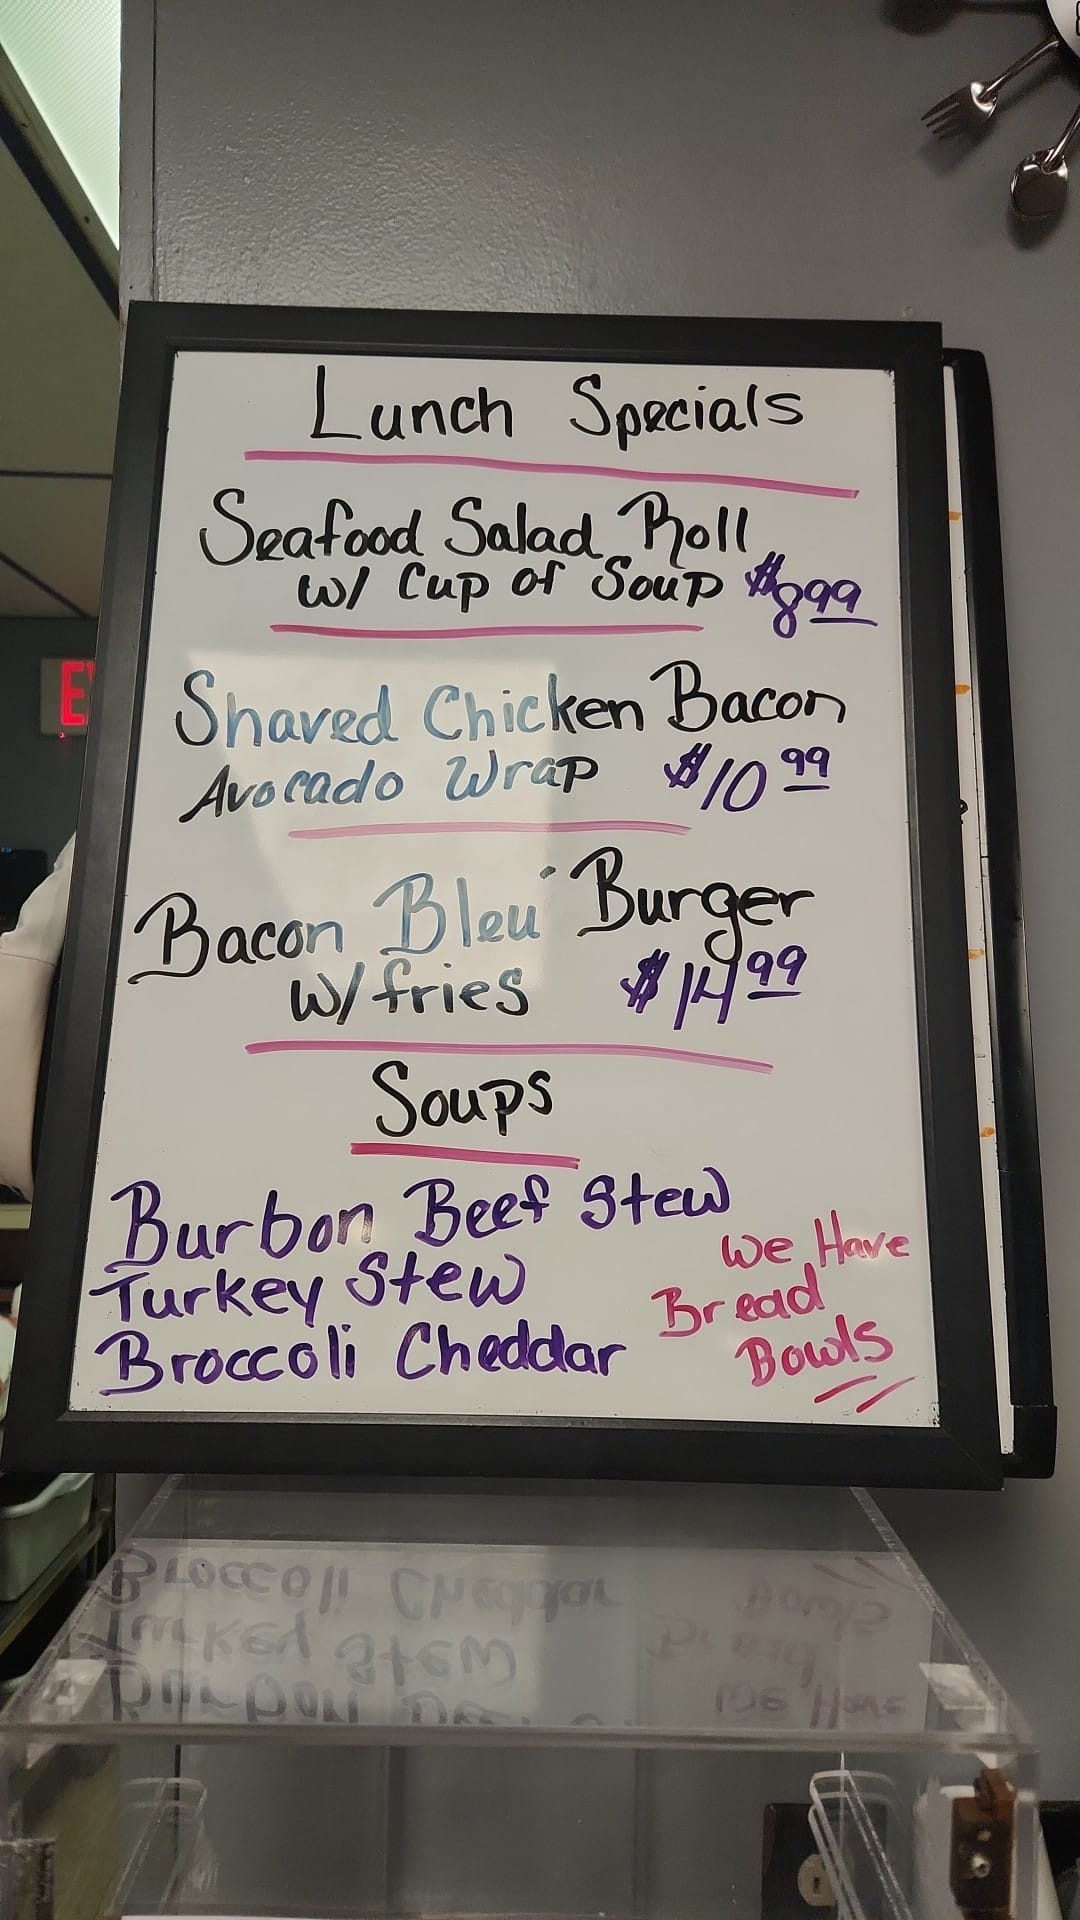 Lunch Specials
Seafood Salad Roll
w/ Cup of Soup $8.99
Shaved Chicken Bacon
Avocado Wrap $10.99
Bacon Bleu Burger
w/fries $14.99
Soups
Burbon Beef Stew
Turkey Stew
Broccoli Cheddar
We Have
Bread
Bowls